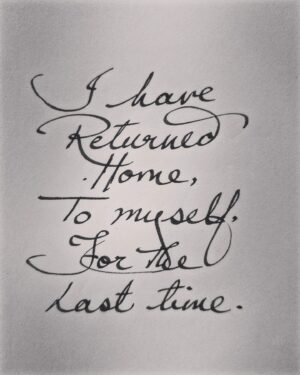 I have
Returned
Home,
To myself.
For the
Last time.